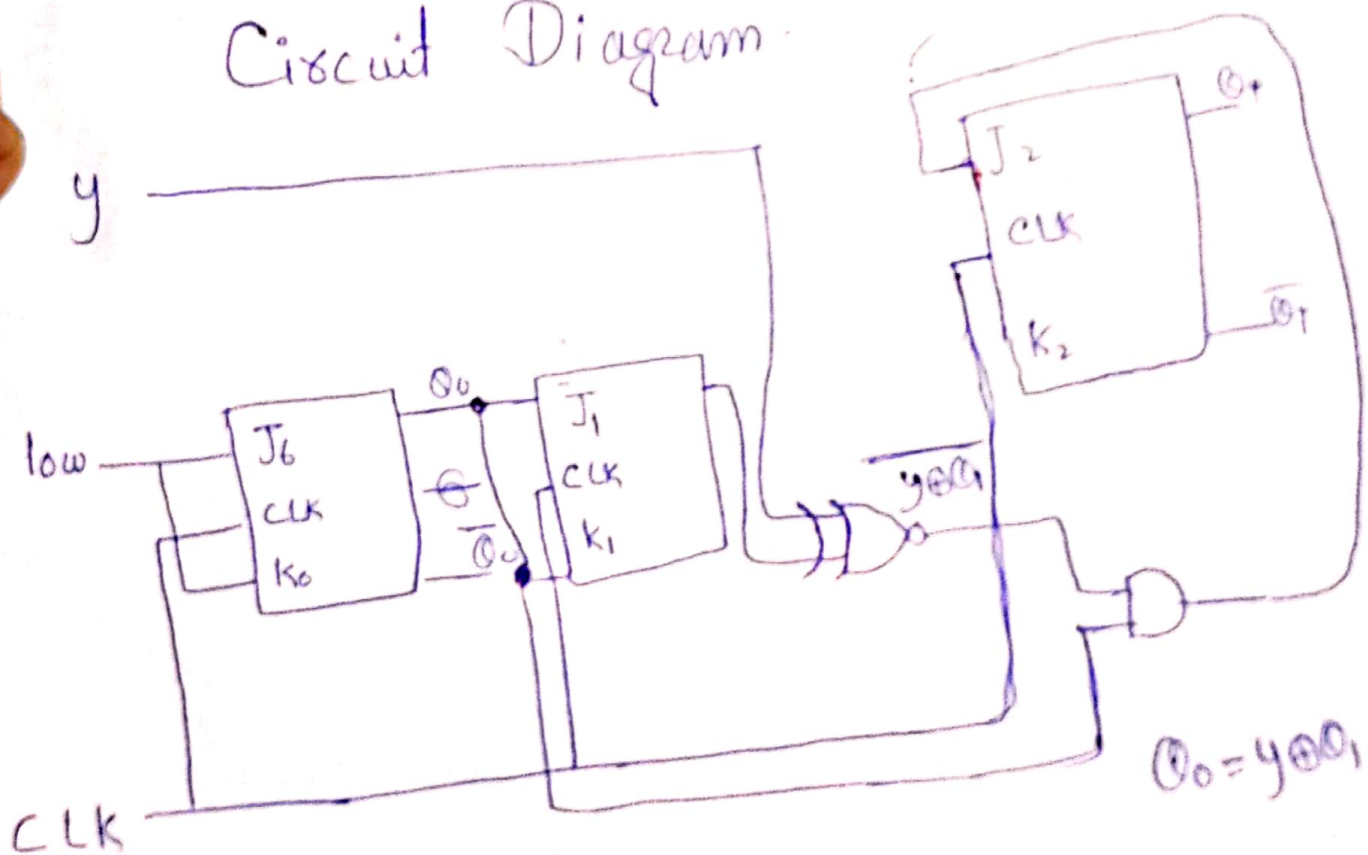 Circuit Diagram
y
low
J0
CLK
K0
Q0
Q̅0
J1
CLK
K1
y⊕Q1
J2
CLK
K2
CLK
Q0 = y⊕Q1